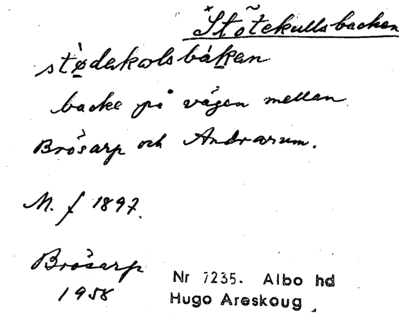 Stötekullsbacken
stødakolsbákan
backe på vägen mellan
Brösarp och Andrarum.
M. f 1897.
Brösarp
1958
Nr 7235. Albo hd
Hugo Areskoug